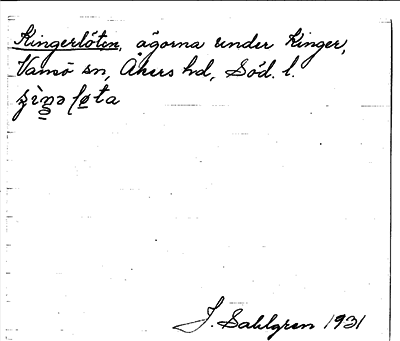 Kingerlöten, ägorna under Kinger,
Vansö sn, Åkers hd, Söd. l.
J. Sahlgren 1931